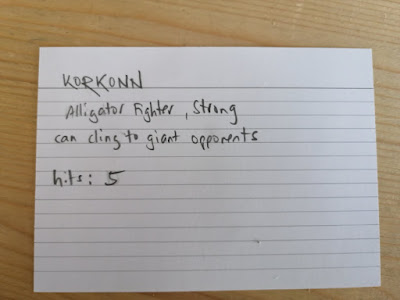 KORKONN
Alligator Fighter, Strong
can cling to giant opponents
hits: 5